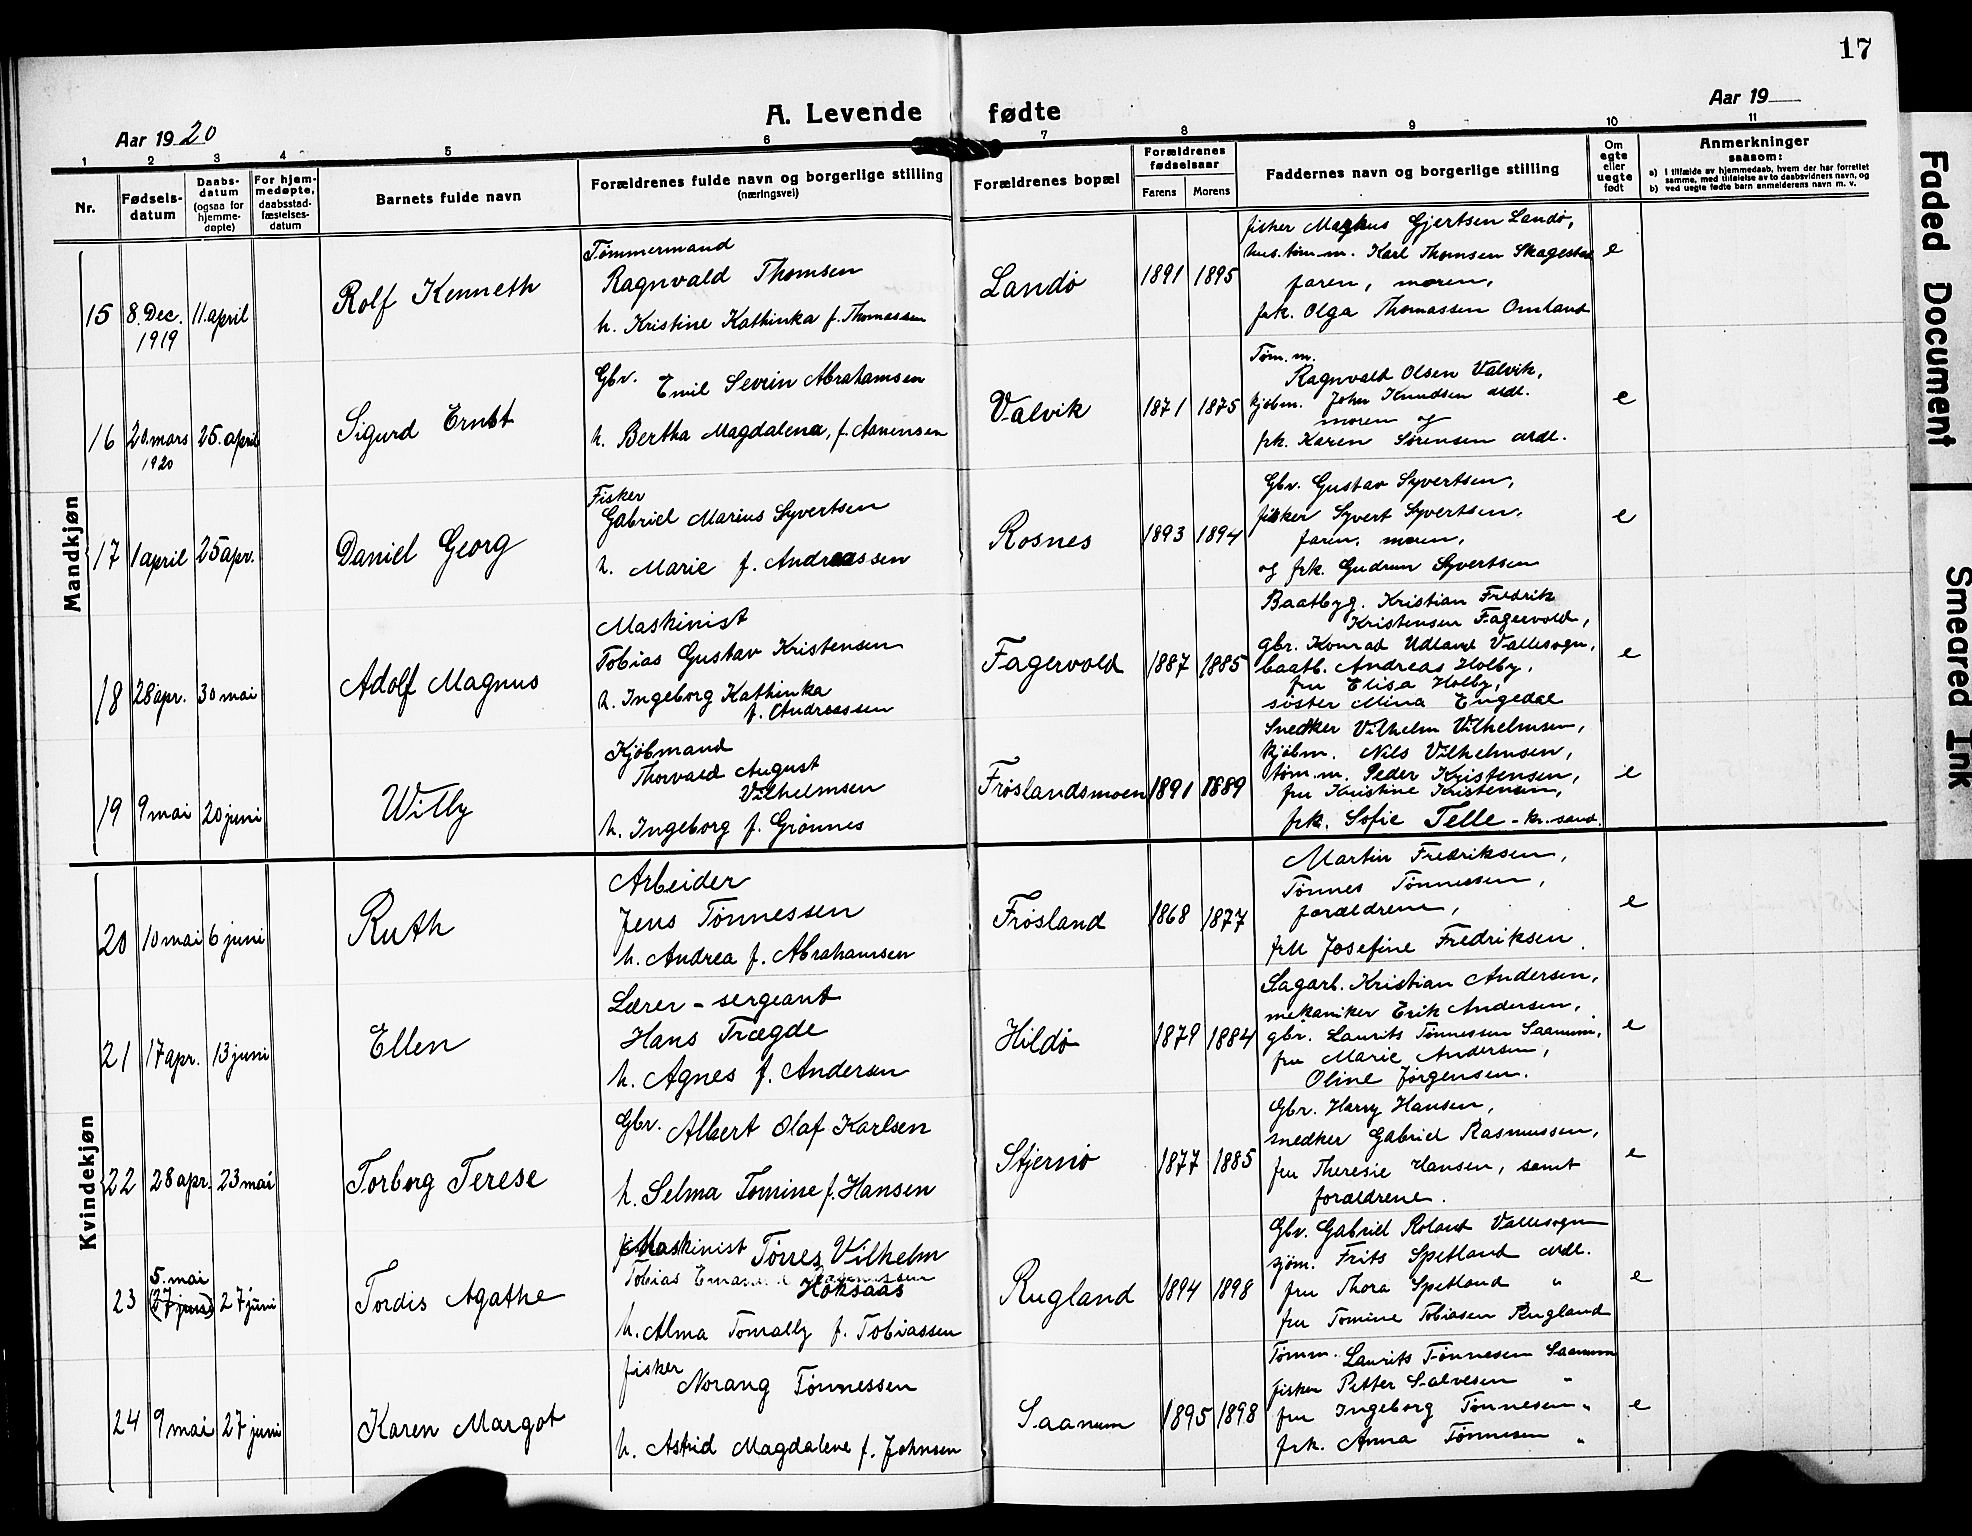 17
A. Levende fødte
Aar 1920
Aar 19
1 2 3 4 5 6 7 8 9 10 11
Nr.
Fødsels-
datum
Daabs-
datum
(ogsaa for
hjemme-
døpte)
For hjem-
medøpte,
daabsstad-
fæstelses-
datum
Barnets fulde navn
Forældrenes fulde navn og borgerlige stilling
(næringsvei)
Forældrenes bopæl
Forældrenes
fødselsaar
Farens Morens
Faddernes navn og borgerlige stilling
Om
egte
eller
uegte
født
Anmerkninger
saasom:
a) I tilfælde av hjemmedaab, hvem der har forrettet
samme, med tilføielse av to daabsvidners navn, og
b) ved uegte fødte barn anmelderens navn m. v.
Mandkjøn
15 8. Dec. 1919 11. april
Rolf Kenneth
Tømmermand
Ragnvald Thomsen
h. Kristine Kathinka f. Thomassen
Landø 1891 1895
fisker Markus Gjertsen Landø,
hus.tøm.m. Karl Thomsen Skagestad
faren, moren,
frk. Olga Thomassen Omland
e
16 20. mars 1920 25. april
Sigurd Ernst
Gbr. Emil Sevrin Abrahamsen
h. Bertha Magdalena, f. Aanensen
Valvik 1871 1875
Tøm. m.
Ragnvald Olsen Valvik,
kjøbm. John Knudsen ardl.
moren og
frk. Karen Sørensen ardl.
e
17 1 april 25 apr.
Daniel Georg
Fisker
Gabriel Marius Syvertsen
h. Marie f. Andreassen
Rosnes 1893 1894
Gbr. Gustav Syvertsen,
fisker Syvert Syvertsen,
faren, moren,
og frk. Gudrun Syvertsen
e
18 28 apr. 30 mai
Adolf Magnus
Maskinist
Tobias Gustav Kristensen
h. Ingeborg Kathinka
f. Andreassen
Fagervold 1887 1885
Baatbyg. Kristian Fredrik
Kristensen Fagervold,
gbr. Konrad Udland Vallesogn,
baatb. Andreas Holby,
fru Elisa Holby,
søster Mina Engedal
e
19 9 mai 20 juni
Willy
Kjøbmand
Thorvald August
Vilhelmsen
h. Ingeborg f. Grønnes
Frøslandsmoen 1891 1889
Snedker Vilhelm Vilhelmsen,
kjøbm. Nils Vilhelmsen,
tøm.m. Peder Kristensen,
fru Kristine Kristensen,
frk. Sofie Telle - kr.sand.
e
Kvindekjøn
20 10 mai 6 juni
Ruth
Arbeider
Jens Tønnessen
h. Andrea f. Abrahamsen
Frøsland 1868 1877
Martin Fredriksen,
Tønnes Tønnessen,
forældrene,
fru Josefine Fredriksen.
e
21 17 apr. 13 juni
Ellen
Lærer - sergeant
Hans Trægde
h. Agnes f. Andersen
Hildø 1879 1884
Sagarb. Kristian Andersen,
mekaniker Erik Andersen,
gbr. Laurits Tønnessen Saanum,
fru Marie Andersen,
Oline Jørgensen.
e
22 28 apr. 23 mai
Torborg Terese
Gbr. Albert Olaf Karlsen
h. Selma Tomine f. Hansen
Stjernø 1877 1885
Gbr. Harry Hansen,
snedker Gabriel Rasmussen,
fru Theresie Hansen, samt
forældrene.
e
23 5. mai (27 juni) 27 juni
Tordis Agathe
Maskinist Tørres Vilhelm
Tobias
Høksaas
h. Alma Tomally f. Tobiassen
Rugland 1894 1898
Gbr. Gabriel Roland Vallesogn
sjøm. Frits Spetland ardl.
fru Thora Spetland "
fru Tomine Tobiasen Rugland
e
24 9 mai 27 juni
Karen Margot
fisker
Norang Tønnessen
h. Astrid Magdalene f. Johnsen
Saanum 1895 1898
Tømm. Laurits Tønnesen Saanum
fisker Petter Salvesen "
fru Ingeborg Tønnesen "
frk. Anna Tønnesen "
e
Faded Document
Smeared Ink